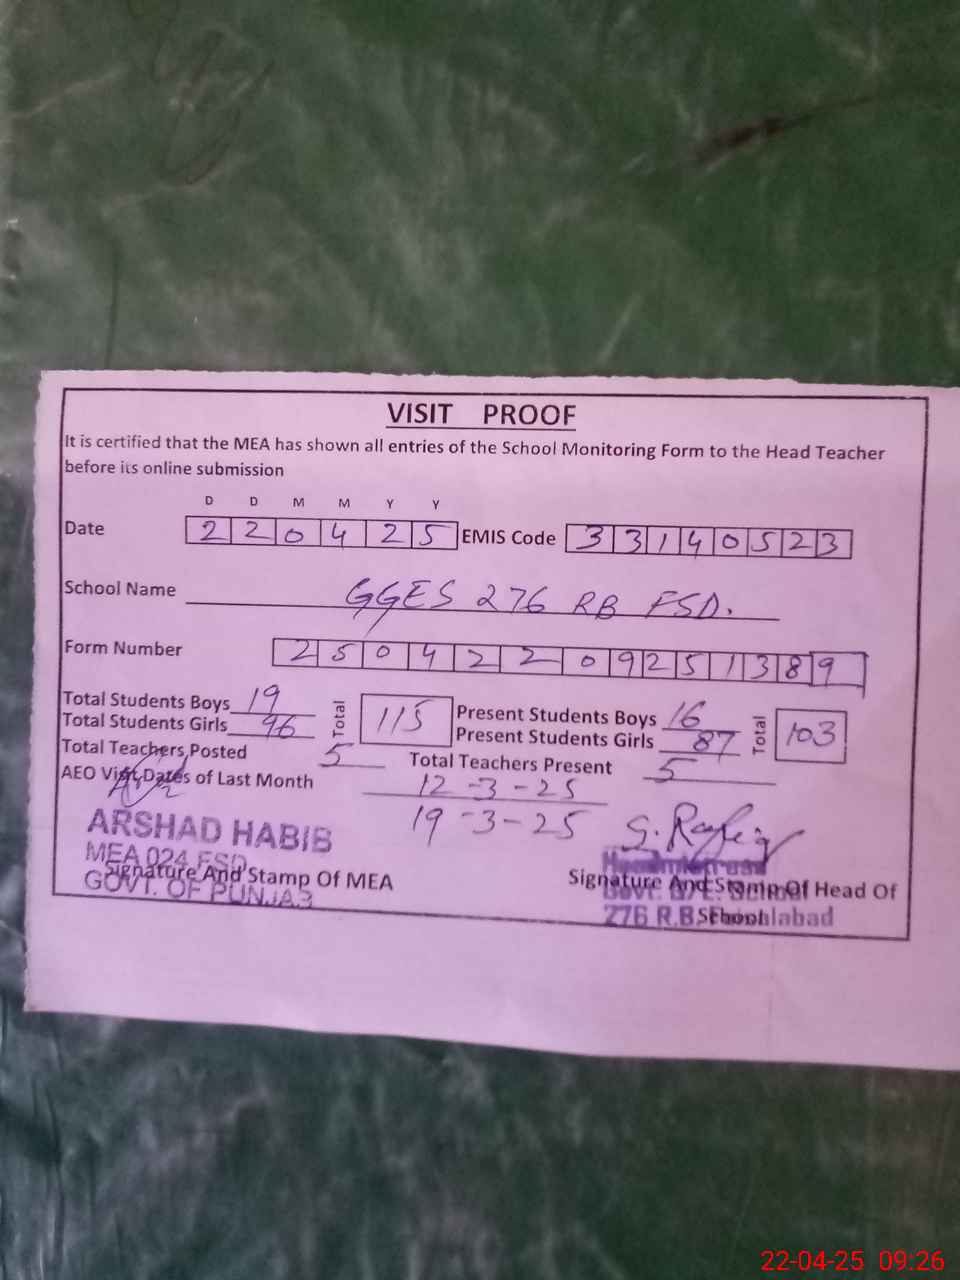 VISIT PROOF
It is certified that the MEA has shown all entries of the School Monitoring Form to the Head Teacher
before its online submission
D D M M Y Y
Date 2 2 0 4 2 5 EMIS Code 3 3 1 4 0 5 2 3
School Name GGES 276 RB FSD.
Form Number 2 5 0 4 2 2 0 9 2 5 1 3 8 9
Total Students Boys 19 Total 115 Present Students Boys 16 Total 103
Total Students Girls 96 Present Students Girls 87
Total Teachers Posted 5 Total Teachers Present 5
AEO Visit Dates of Last Month 12-3-25
19-3-25
ARSHAD HABIB
MEA 024 FSD
Signature And Stamp Of MEA
GOVT. OF PUNJAB
Signature And Stamp Of Head Of
School
276 R.B. Faisalabad
22-04-25 09:26